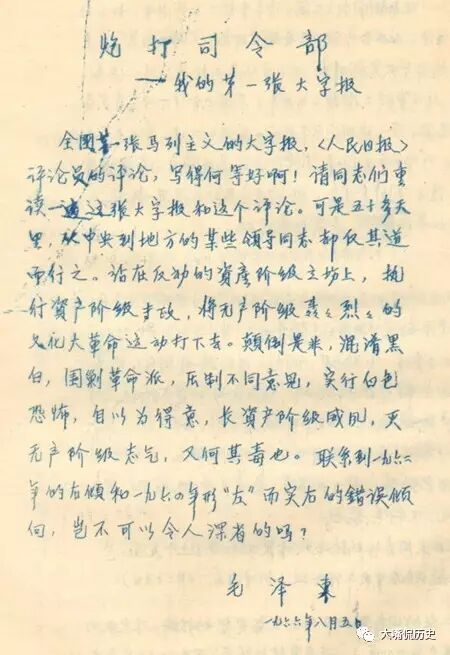 炮打司令部
——我的第一张大字报
全国第一张马列主义的大字报，《人民日报》
评论员的评论，写得何等好啊！请同志们重
读一遍这张大字报和这个评论。可是五十多天
里，从中央到地方的某些领导同志却反其道
而行之。站在反动的資產阶级立场上，执
行資产阶级专政，将无产阶级轰々烈々的
文化大革命运动打下去。颠倒是非，混淆黑
白，围剿革命派，压制不同意见，实行白色
恐怖，自以为得意，长資產阶级威风，灭
无产阶级志气，又何其毒也。联系到一九六二
年的右倾和一九六四年形“左”而实右的錯误倾
向，岂不可以令人深省的吗？
毛泽東
一九六六年八月五日
大嘴侃历史